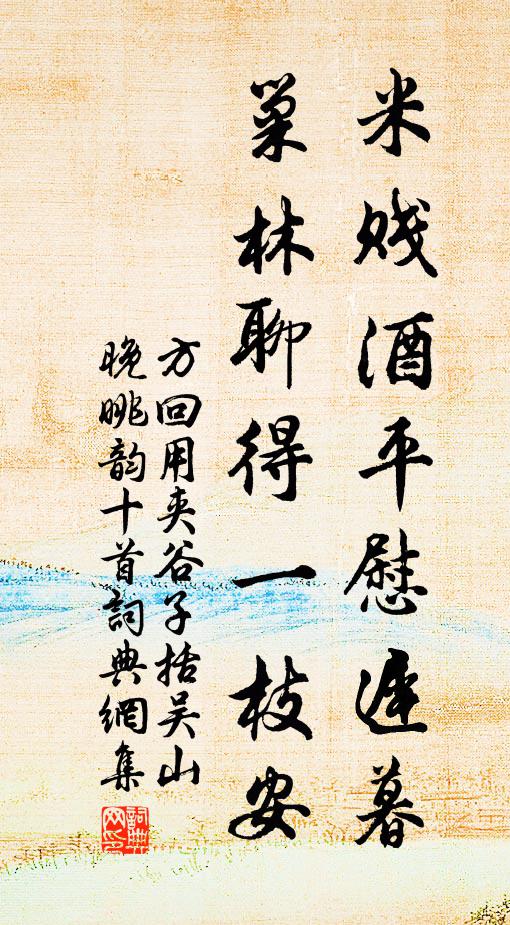 米贱酒平慰遲暮
巢林聊得一枝安
方回用夹谷子括吴山
晚眺韵十首詞典網集
詞典网印